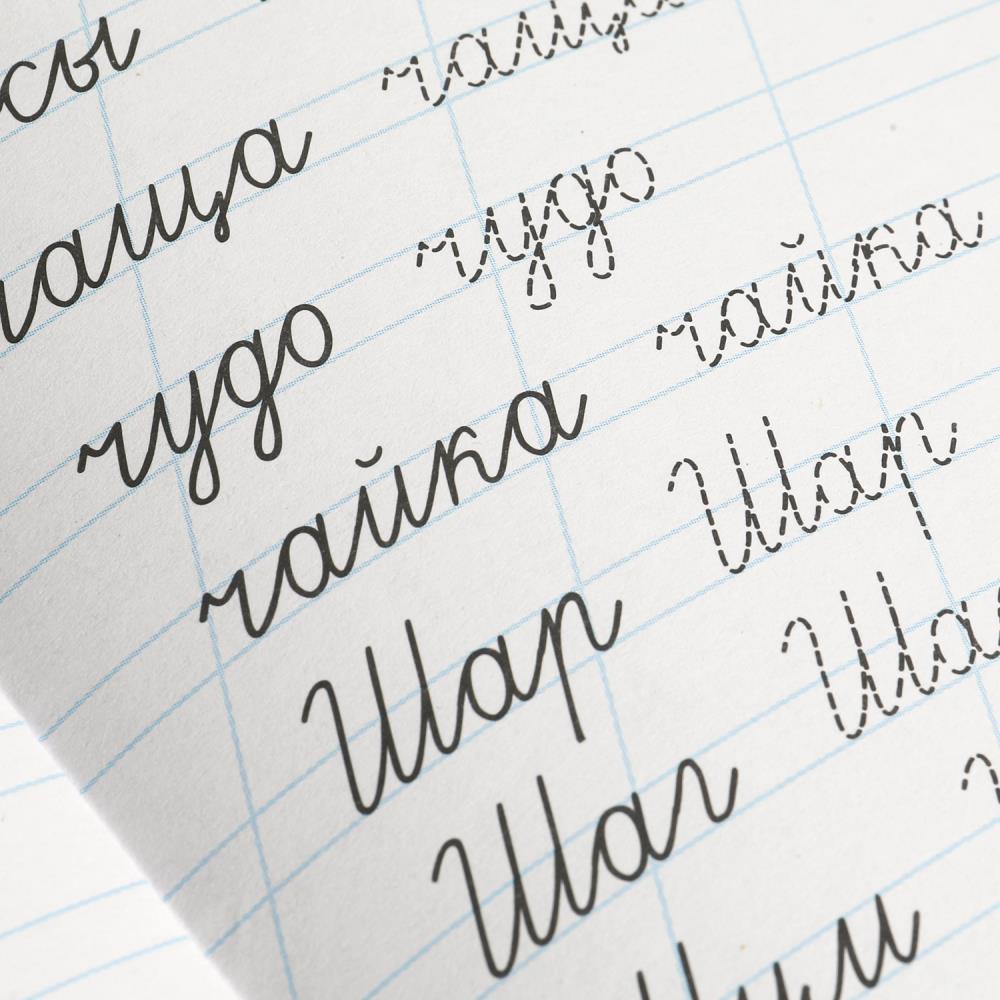 сы
чаща чаща
чудо чудо
чайка чайка
Шар Шар
Шаг Ша
Шум